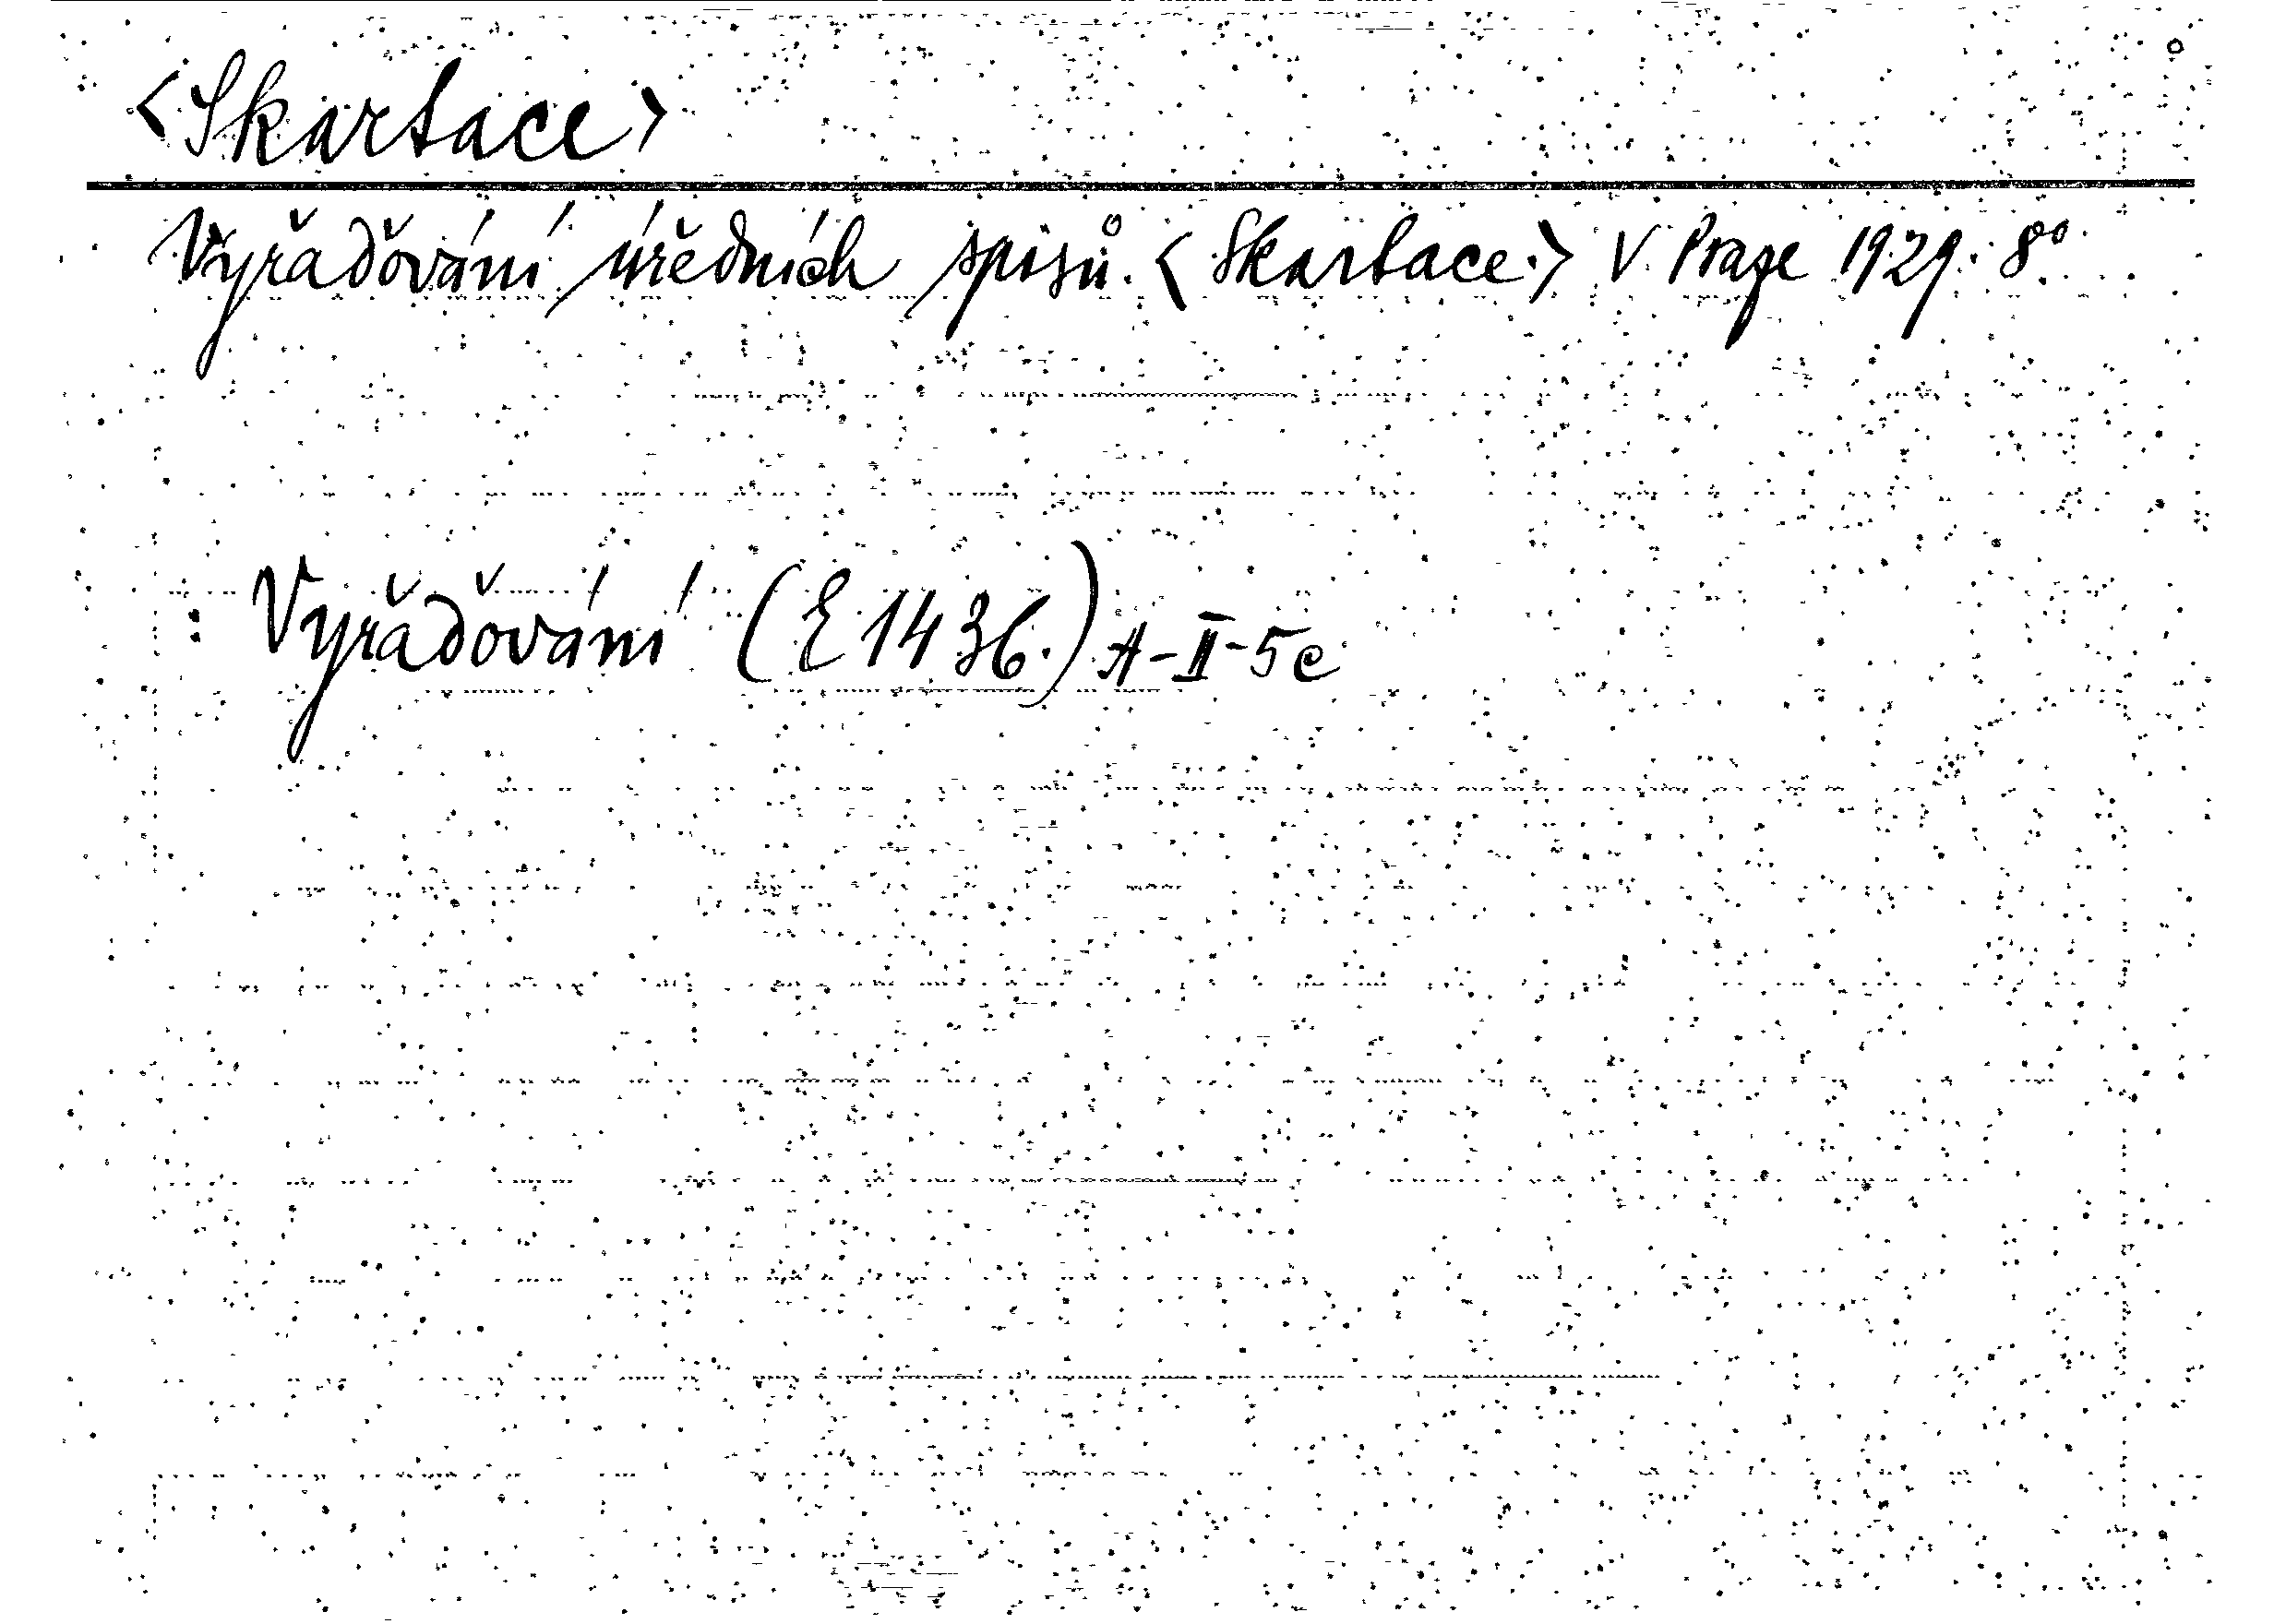 <Skartace>
Vyřaďování úředních spisů. <Skartace.> V Praze 1929. 8°
: Vyřaďování (E 1436.) A-II-5c